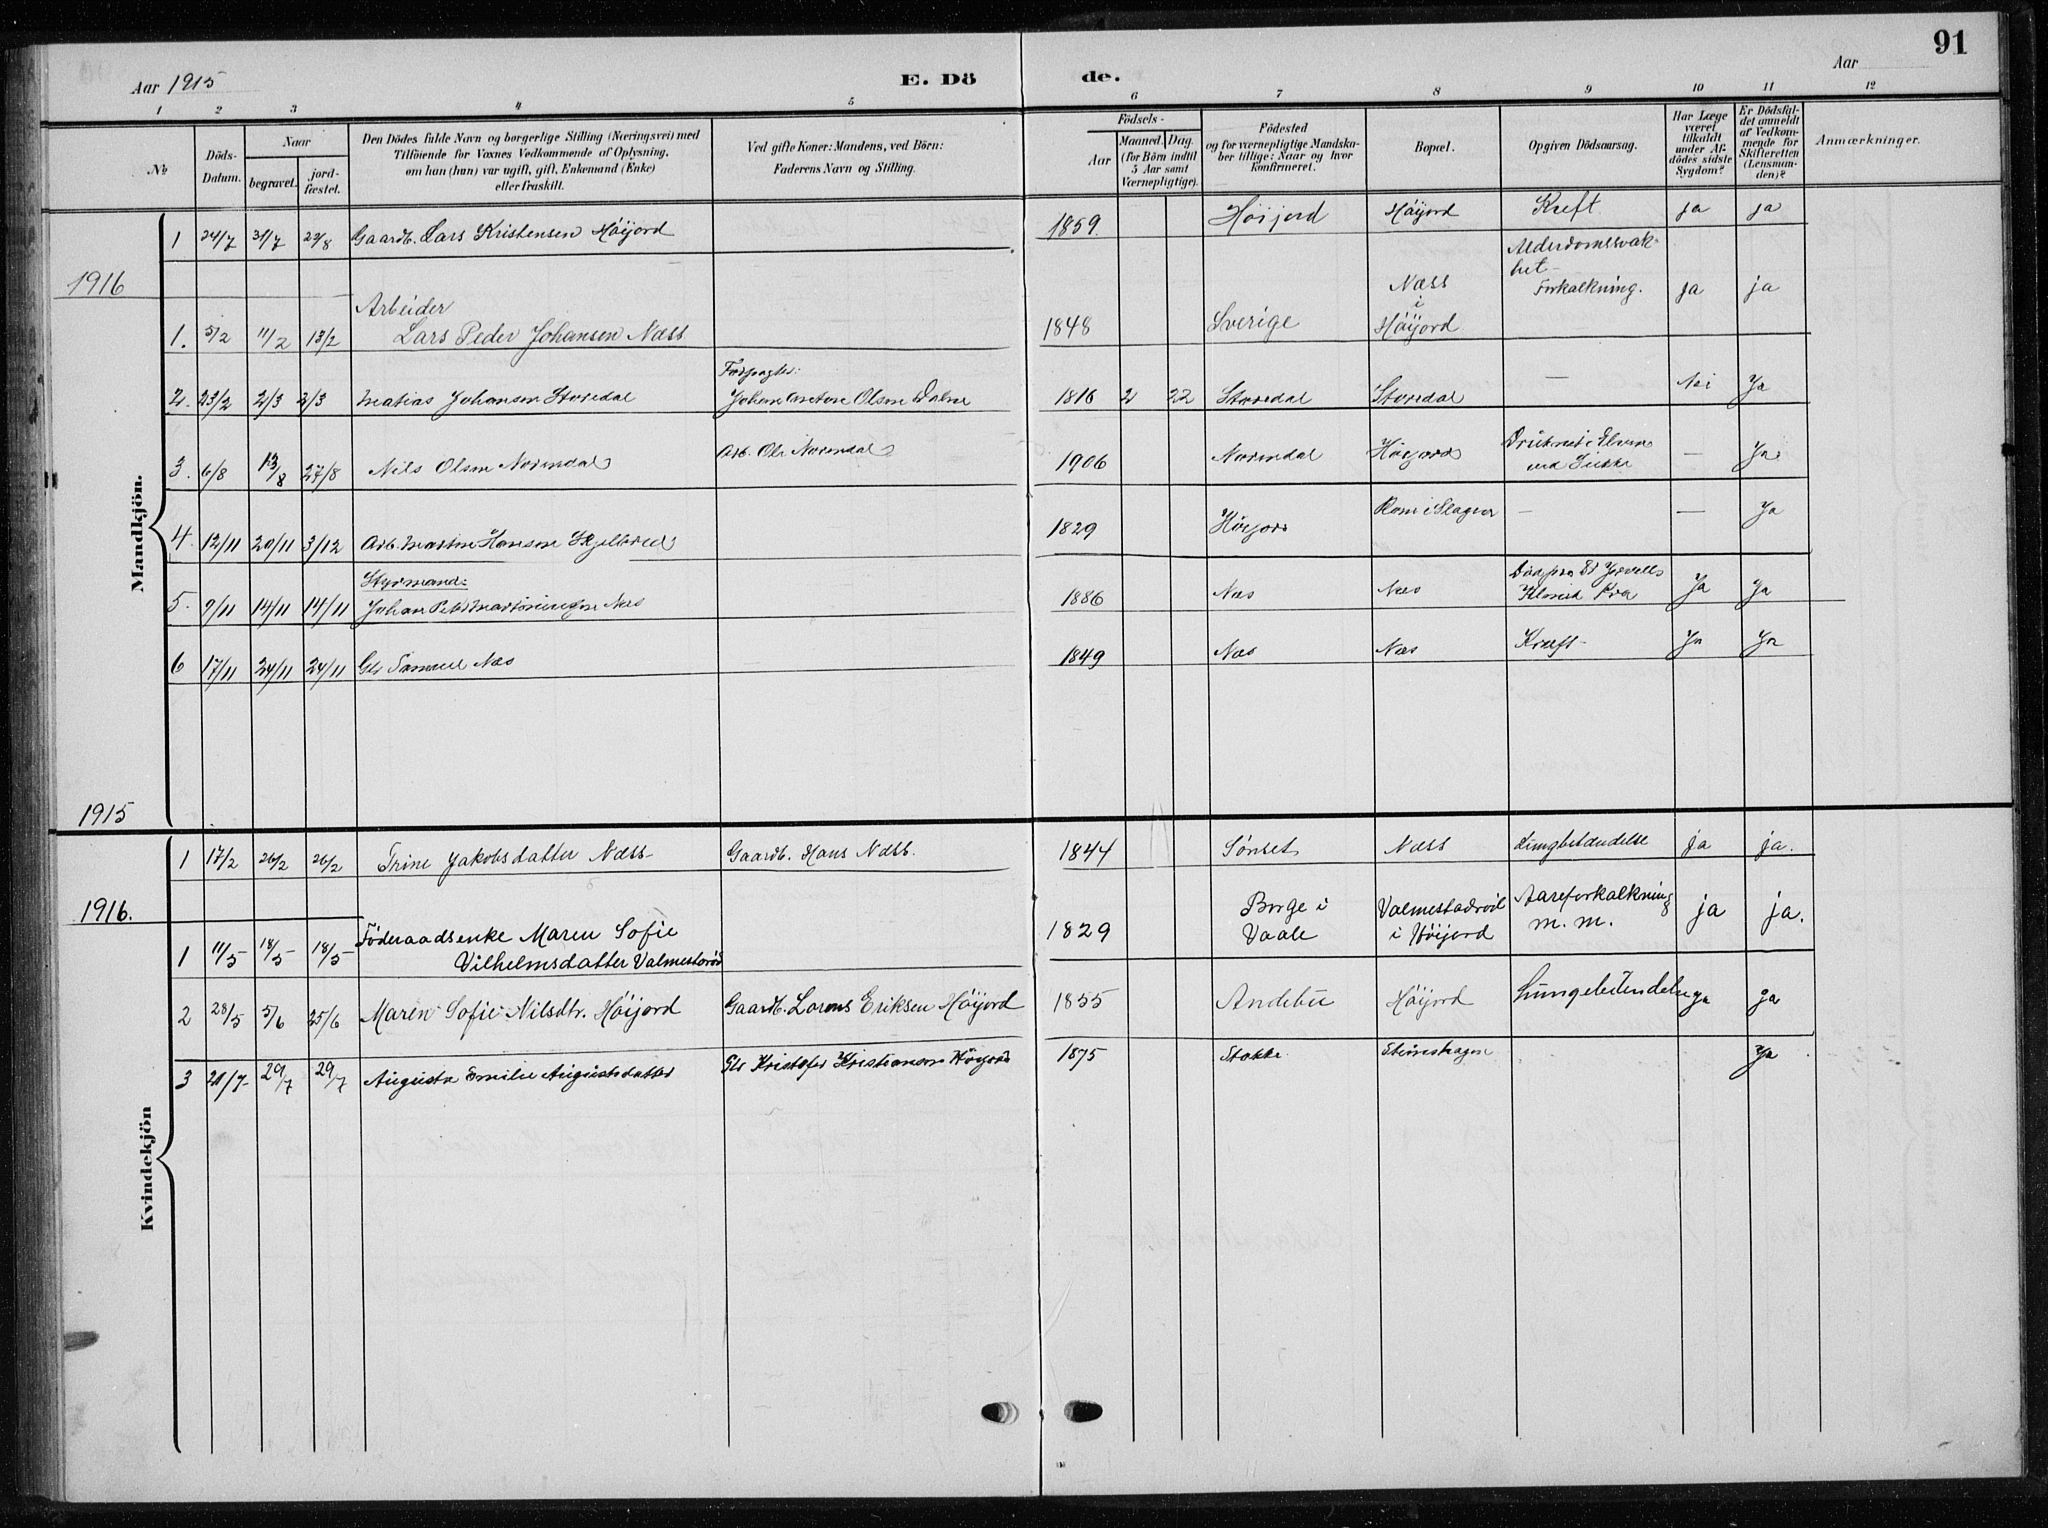 91
Aar 1915
E. Dö
de.
Aar
1 2 3 4 5 6 7 8 9 10 11 12
No
Döds-
Datum.
Naar
begravet.
jord-
fæstet.
Den Dödes fulde Navn og borgerlige Stilling (Næringsvei) med
Tilföiende for Voxnes Vedkommende af Oplysning,
om han (hun) var ugift, gift, Enkemand (Enke)
eller fraskilt.
Ved gifte Koner: Mandens, ved Börn:
Faderens Navn og Stilling.
Födsels-
Aar
Maaned. Dag.
(for Börn indtil
5 Aar samt
Værnepligtige).
Födested
og for værnepligtige Mandska-
ber tillige: Naar og hvor
Konfirmeret.
Bopæl.
Opgiven Dödsaarsag.
Har Læge
været
tilkaldt
under Af-
dödes sidste
Sygdom?
Er Dödsfal-
det anmeldt
af Vedkom-
mende for
Skifteretten
(Lensman-
den)?
Anmærkninger.
Mandkjön.
1 24/7 31/7 22/8 Gaardb. Lars Kristensen Höijord 1859. Höijord Höijord Kreft ja ja
1916
1. 5/2 11/2 13/2 Arbeider
Lars Peder Johansen Næss 1848 Sverige Næss
i
Höijord Alderdomssvak-
het-
Forkalkning. ja ja
2. 23/2 2/3 2/3 Matias Johansen Storedal Forpagter:
Johan Anton Olsen 1816 2 22 Storedal Storedal — Nei Ja
3. 6/8 13/8 27/8 Nils Olsen Normdal Arb. Ole Normdal 1906 Normdal Höijord Druknet i Elven
ved — Ja
4. 12/11 20/11 3/12 Arb. Martin Hansen 1829 Höijord Rom i Slagen — — Ja
5. 9/11 14/11 14/11 Styrmand:
Johan Næs 1886 Næs Næs Ja Ja
6 17/11 24/11 24/11 Næs 1849 Næs Næs Kræft Ja Ja
1915
Kvindekjön
1 17/2 26/2 26/2 Trine Jakobsdatter Næss Gaardb. Hans Næss. 1844 Sönset Næss Lungbetændelse ja ja.
1916.
1 11/5 18/5 18/5 Föderaadsenke Maren Sofie
Vilhelmsdatter Valmestadröd 1829 Borge i
Vaale Valmestadröd
i Höijord Aareforkalkning
m. m. ja ja.
2 28/5 5/6 25/6 Maren Sofie Nilsdtr. Höijord Gaardb. Lorens Eriksen Höijord 1855 Andebu Höijord Lungebetendelse ja ja
3 21/7 29/7 29/7 Augusta Emilie Augustsdatter Gb Kristofer Kristiansen Höijord 1875 Stokke Ja